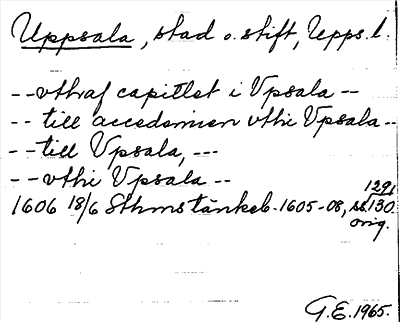 Uppsala, stad o. stift, Upps. l.
-- vthaf capitlet i Vpsala --
-- till accedemien vthi Vpsala --
-- till Vpsala, ---
-- vthi Vpsala --
1606 18/6 Sthms tänkeb. 1605-08, ss. 129, 130
orig.
G.E. 1965.